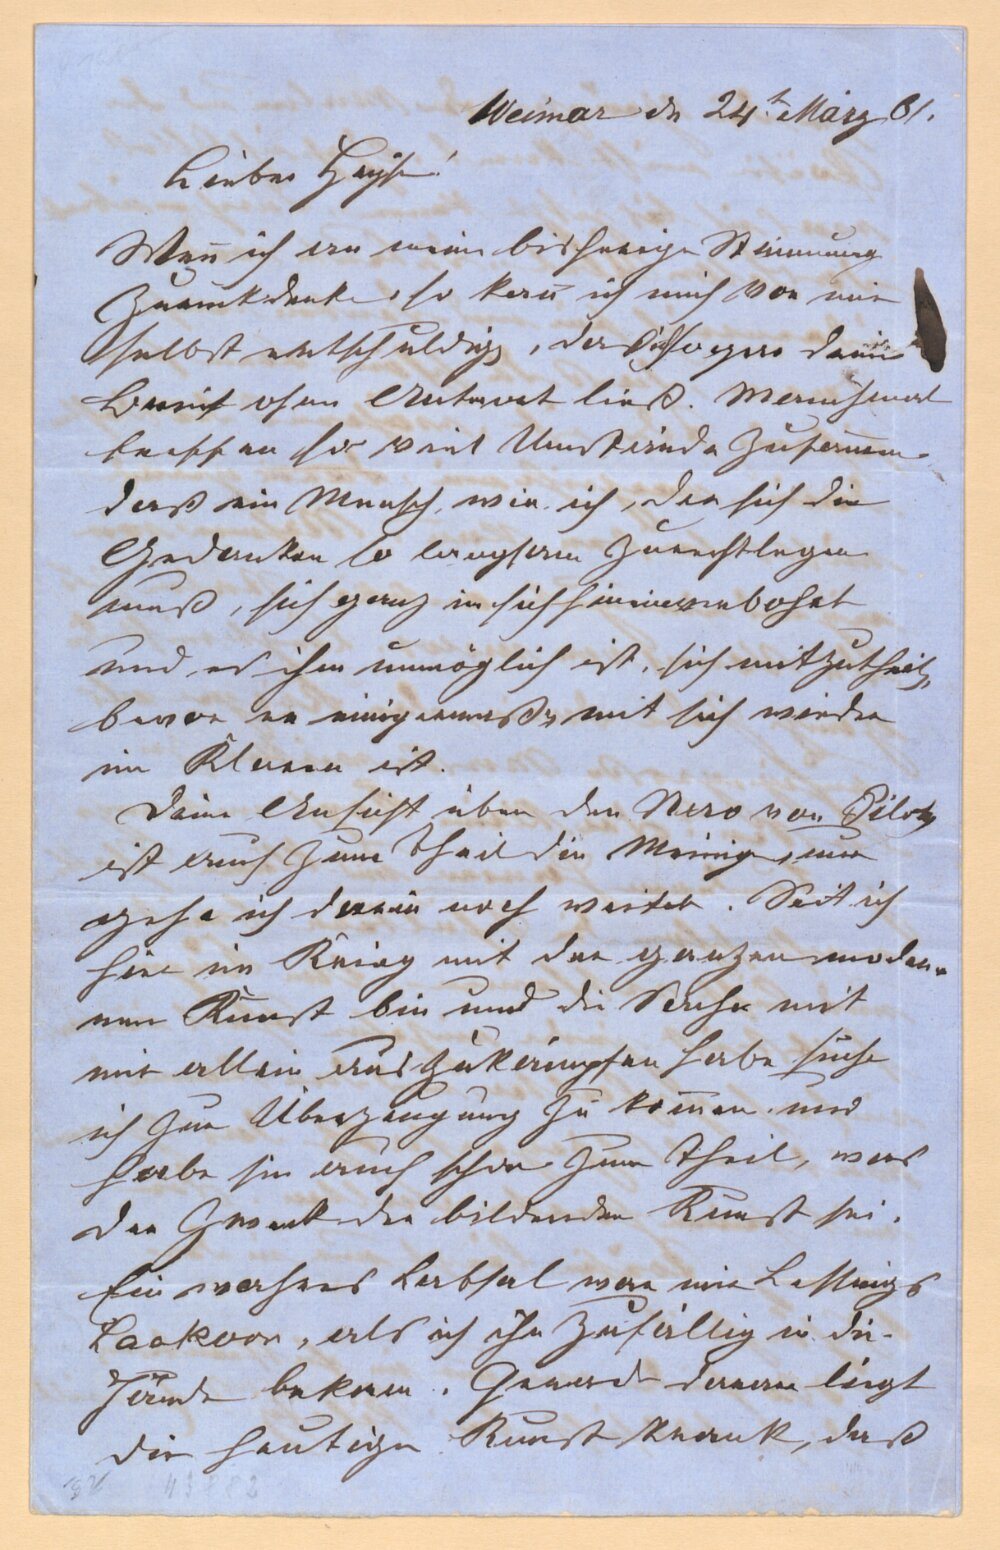 Weimar dn 24t März 61.
Lieber Heyse!
Wenn ich an meine bisherige Stimmung
zurückdenke, so kann ich mich vor mir
selbst entschuldigen, daß ich deinen
Brief ohne Antwort ließ. Manchmal
treffen so viel Umstände zusammen
daß ein Mensch, wie ich, der sich die
Gedanken so langsam zurechtlegen
muß, sich ganz in sich hineinverbohrt
und es ihm unmöglich ist, sich mitzutheilen,
bevor er einigermaßen mit sich wieder
im Klaren ist.
Deine Ansicht über den Nero von Piloty
ist auch zum Theil die Meinige, nur
gehe ich darin noch weiter. Seit ich
hier im Krieg mit der ganzen moder-
nen Kunst bin und die Sache mit
mir allein auszukämpfen habe suche
ich zur Überzeugung zu kommen und
habe sie auch schon zum Theil, was
der Zweck der bildenden Kunst sei.
Ein wahres Labsal war mir Lessings
Laokoon, als ich ihn zufällig in die
Hände bekam. Gerade daran liegt
die heutige Kunst krank, daß
43882